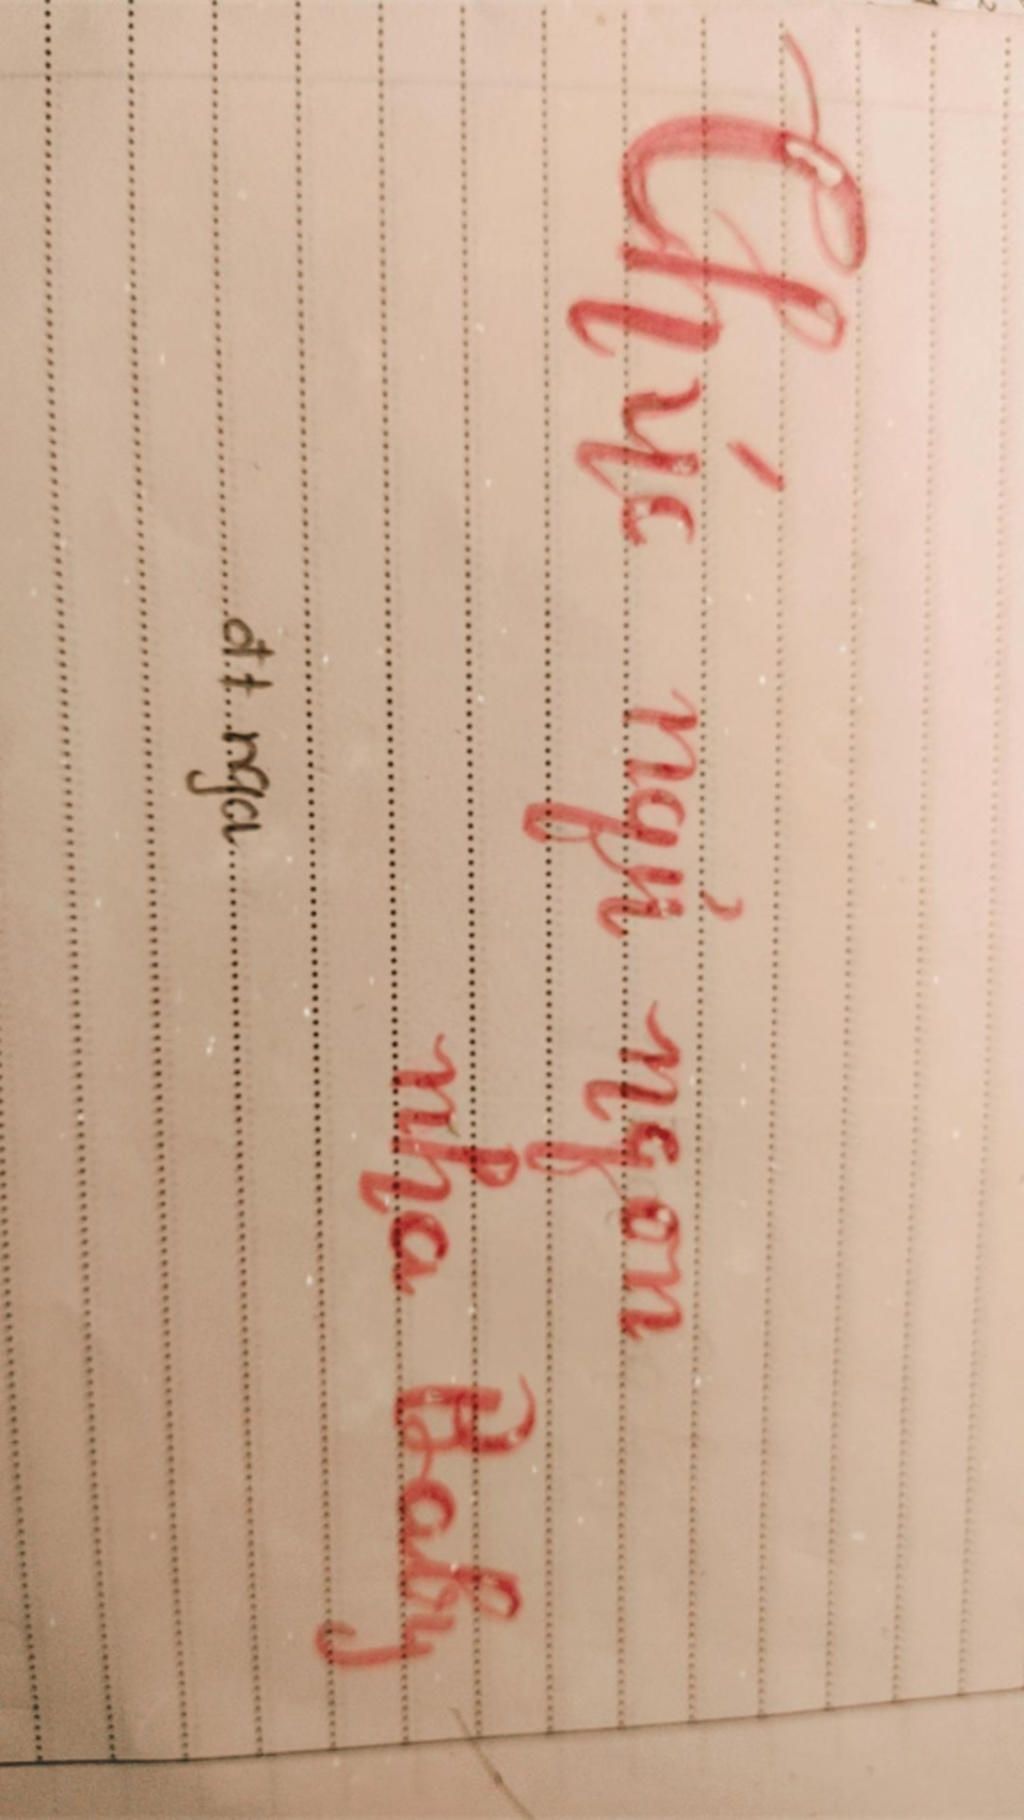 Chúc ngủ ngon
nha Baby
đt nga